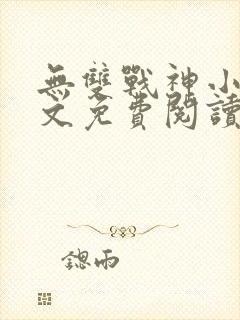 無雙戰神小
文免費閱讀
鍶雨